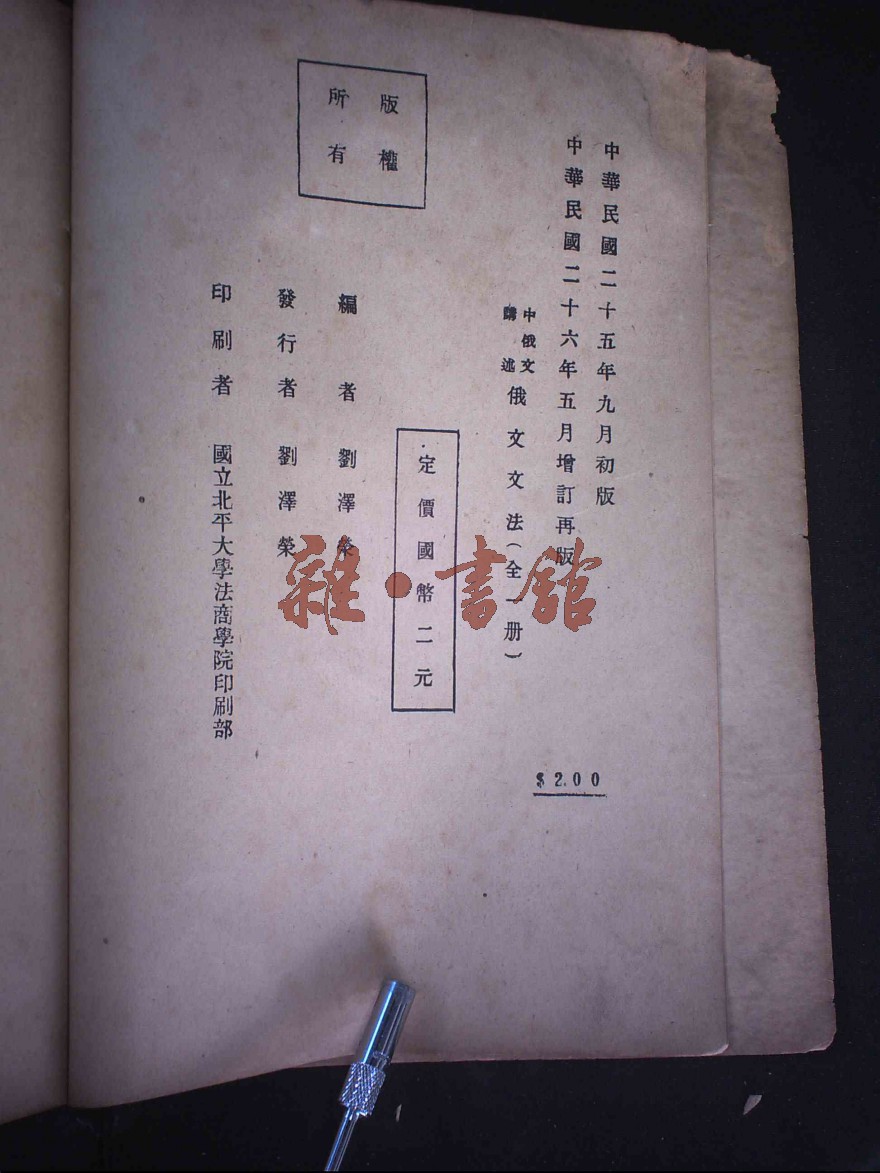 中華民國二十五年九月初版
中華民國二十六年五月增訂再版
中俄文
講述
俄文文法(全一册)
定價國幣二元
版權
所有
編者劉澤榮
發行者劉澤榮
印刷者國立北平大學法商學院印刷部
$2.00
雜·書館